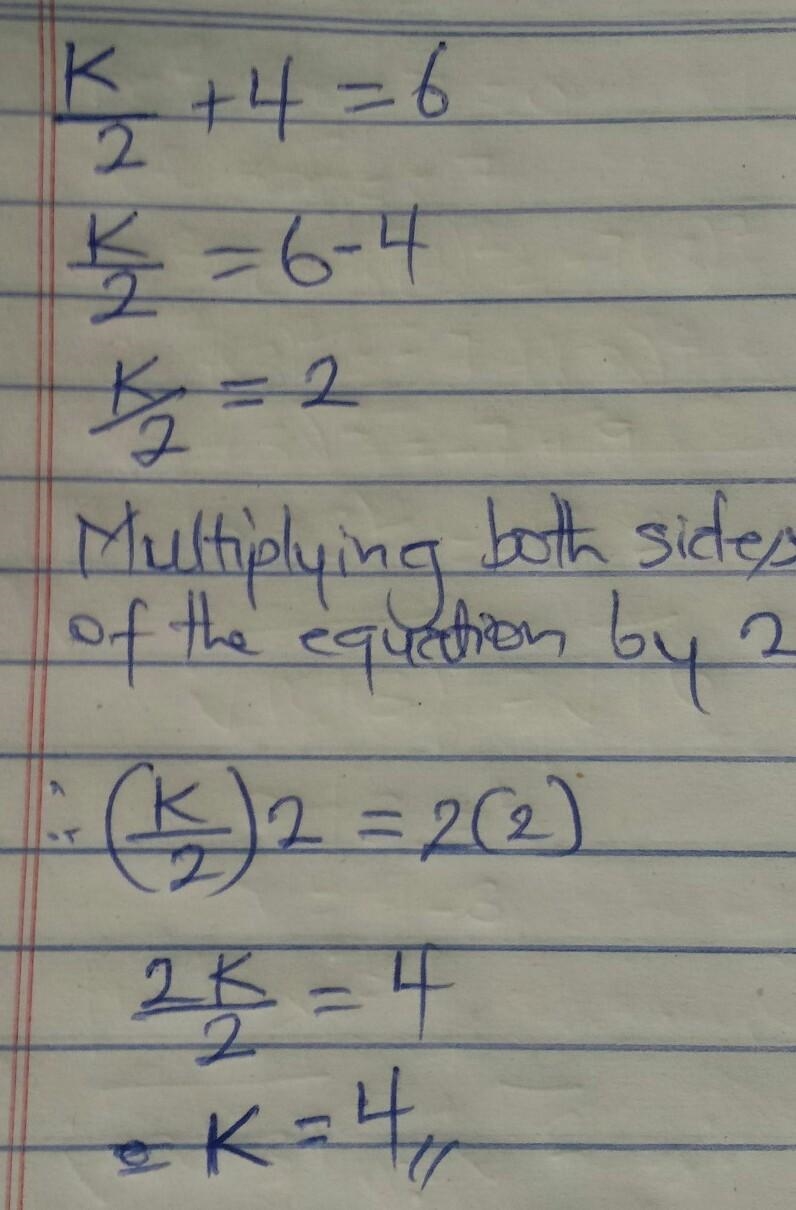 K/2 + 4 = 6
K/2 = 6 - 4
K/2 = 2
Multiplying both sides
of the equation by 2
∴ (K/2) 2 = 2(2)
2K/2 = 4
K = 4//